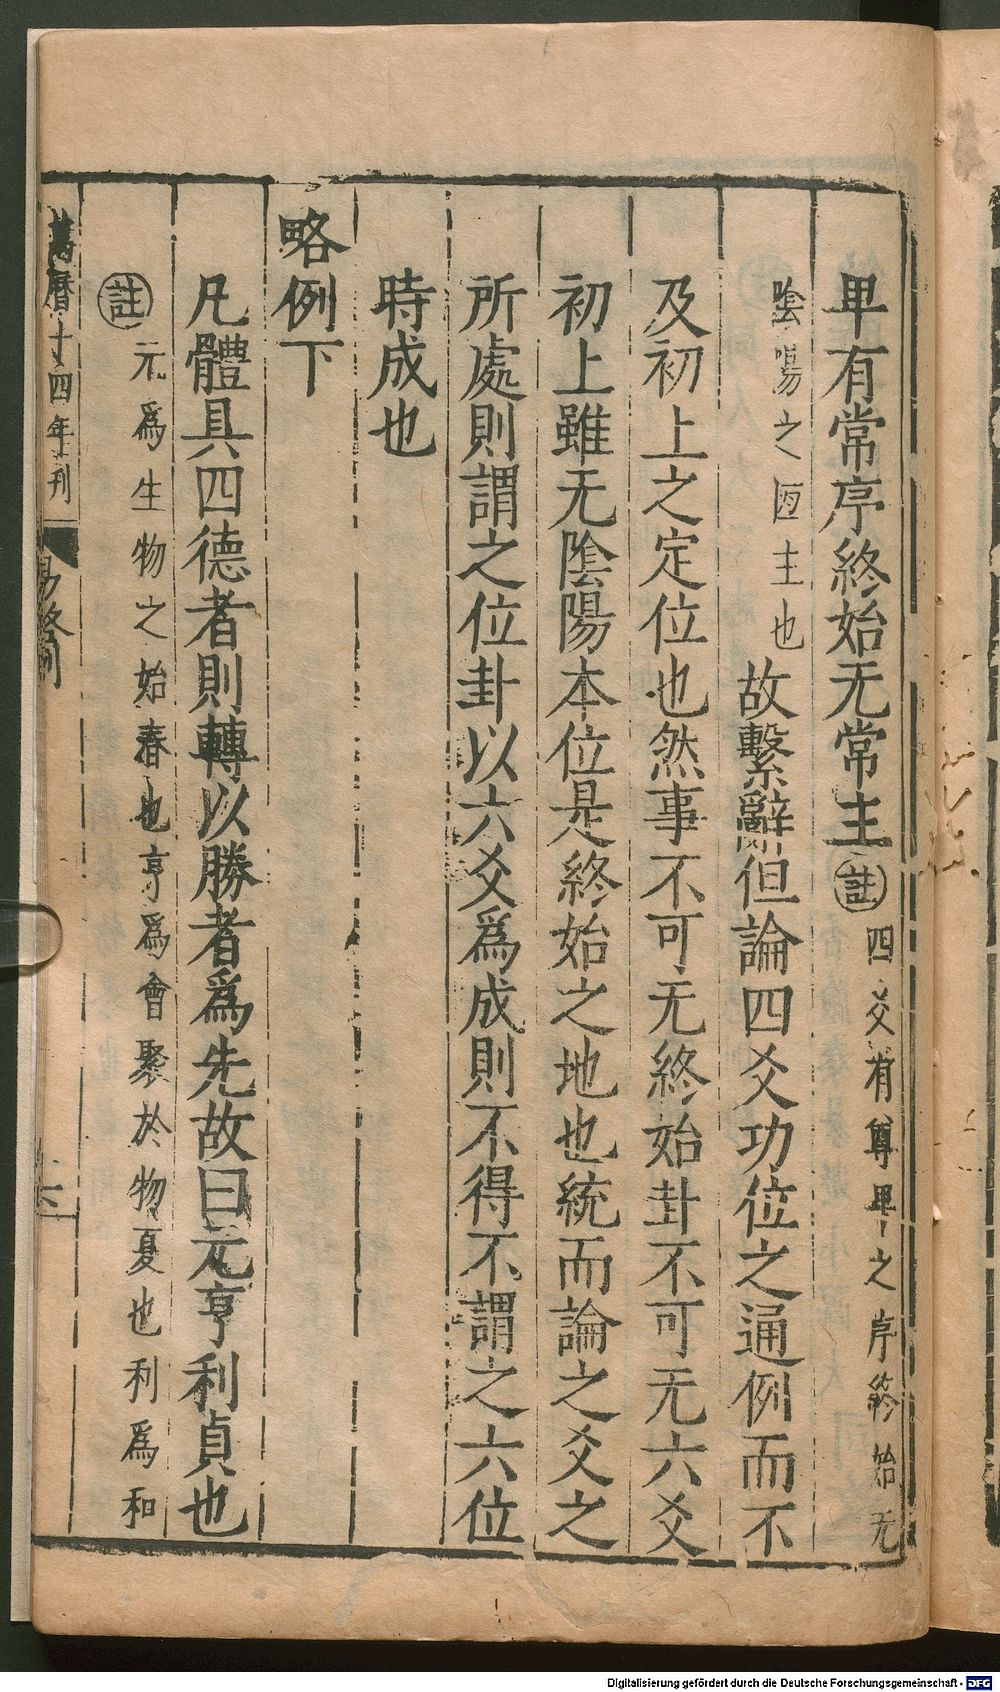 卑有常序終始无常主註四爻有尊卑之序終始无
陰陽之恆主也故繫辭但論四爻功位之通例而不
及初上之定位也然事不可无終始卦不可无六爻
初上雖无陰陽本位是終始之地也統而論之爻之
所處則謂之位卦以六爻為成則不得不謂之六位
時成也
略例下
凡體具四德者則轉以勝者為先故曰元亨利貞也
註元為生物之始春也亨為會聚於物夏也利為和
萬曆十四年刊
易略例
六
Digitalisierung gefördert durch die Deutsche Forschungsgemeinschaft - DFG